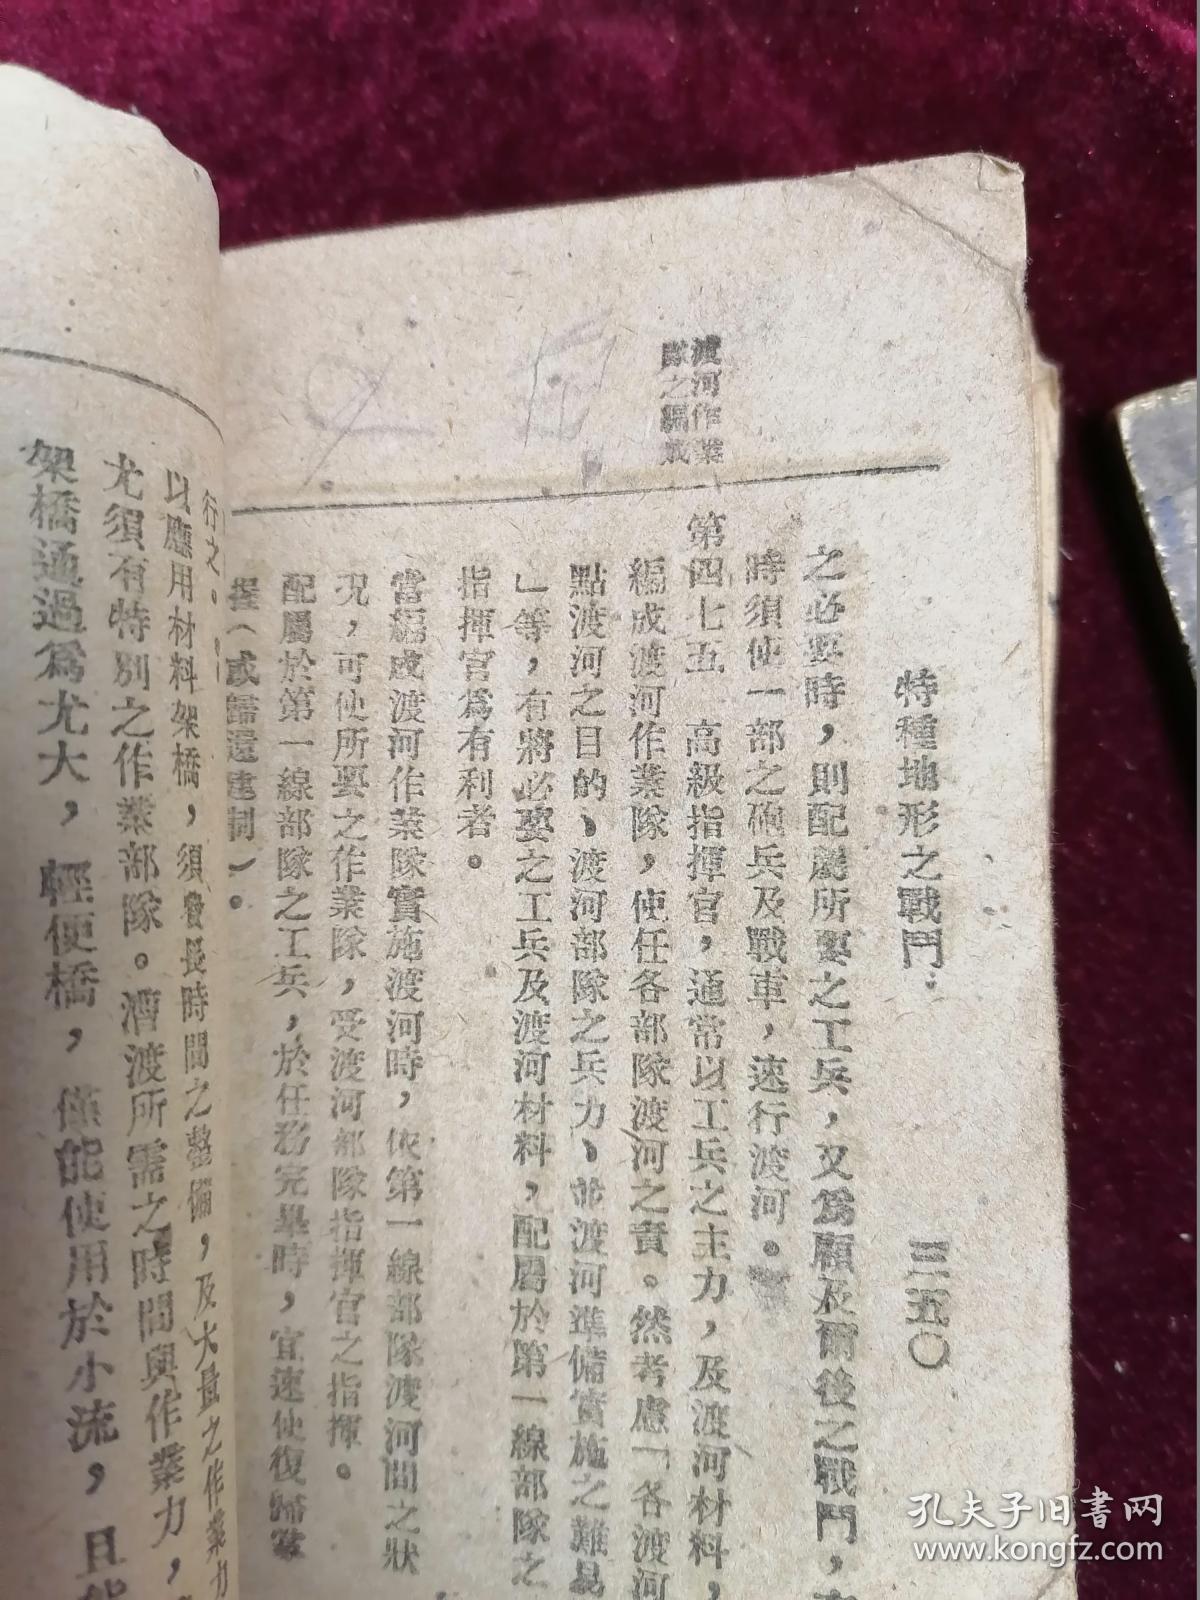 特種地形之戰鬥
三五〇
渡河作業
隊之編成
之必要時，則配屬所要之工兵，又爲顧及爾後之戰鬥，
時須使一部之砲兵及戰車，速行渡河。
第四七五　高級指揮官，通常以工兵之主力，及渡河材料，
編成渡河作業隊，使任各部隊渡河之責。然考慮「各渡河
點渡河之目的、渡河部隊之兵力、並渡河準備實施之難易
」等，有將必要之工兵及渡河材料，配屬於第一線部隊之
指揮官爲有利者。
當編成渡河作業隊實施渡河時，依第一線部隊渡河間之狀
况，可使所要之作業隊，受渡河部隊指揮官之指揮。
配屬於第一線部隊之工兵，於任務完畢時，宜速使復歸掌
握（或歸還建制）。
行之。
以應用材料架橋，須費長時間之整備，及大量之作業力
尤須有特別之作業部隊。漕渡所需之時間與作業力，
架橋通過爲尤大，輕便橋，僅能使用於小流，且
孔夫子旧书网
www.kongfz.com